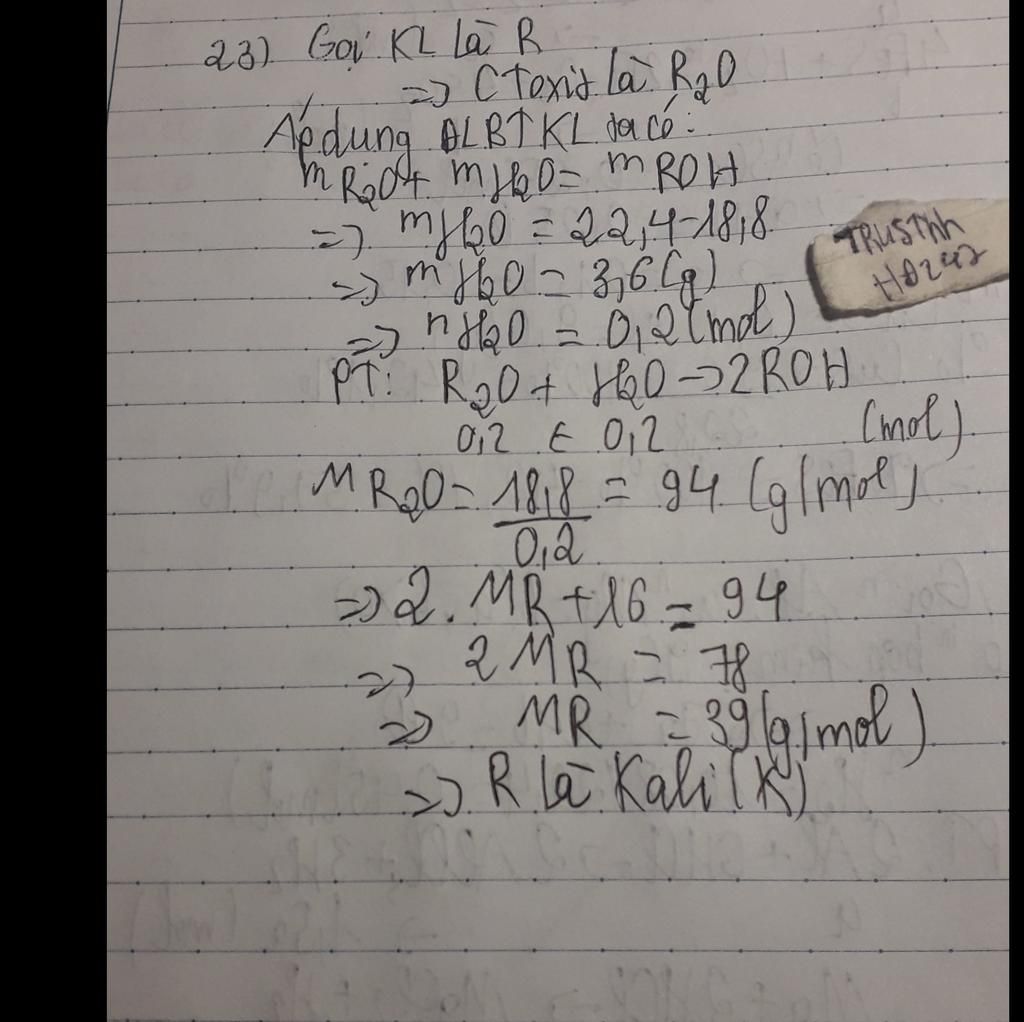 23) Gọi KL là R
=> CT oxit là R2O
Áp dụng ĐLBTKL ta có:
mR2O + mH2O = mROH
=> mH2O = 22,4-18,8
=> mH2O = 3,6(g)
=> nH2O = 0,2(mol)
TRUSTnh
HĐ247
PT: R2O + H2O -> 2ROH
0,2 ← 0,2 (mol)
MR2O = 18,8/0,2 = 94 (g/mol)
=> 2. MR + 16 = 94
=> 2MR = 78
=> MR = 39(g/mol)
=> R là Kali (K)